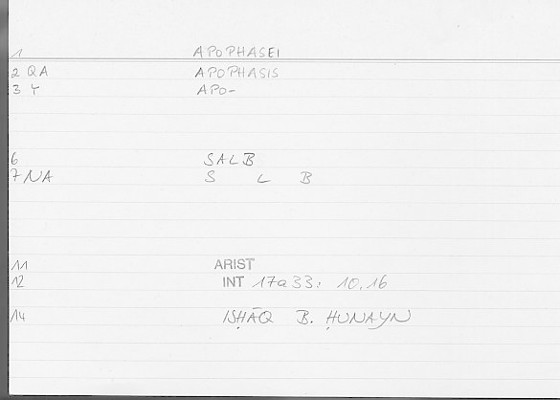 1 APOPHASEI
2 QA APOPHASIS
3 Y APO-
6 SALB
7 NA S L B
11 ARIST
12 INT 17a33: 10.16
14 ISḤĀQ B. ḤUNAYN